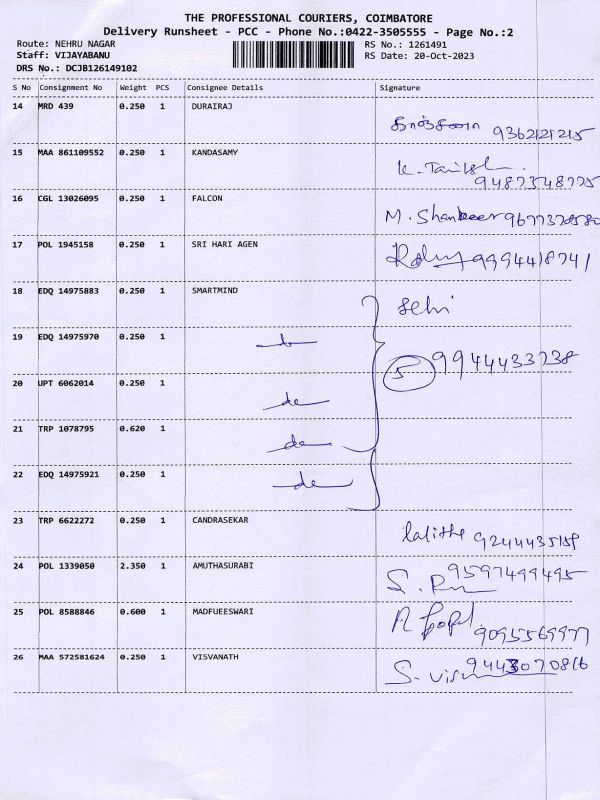 THE PROFESSIONAL COURIERS, COIMBATORE
Delivery Runsheet - PCC - Phone No.:0422-3505555 - Page No.:2
Route: NEHRU NAGAR RS No.: 1261491
Staff: VIJAYABANU RS Date: 20-Oct-2023
DRS No.: DCJB126149102
S No Consignment No Weight PCS Consignee Details Signature
14 MRD 439 0.250 1 DURAIRAJ
9362121215
15 MAA 861109552 0.250 1 KANDASAMY
K.
9487348775
16 CGL 13026095 0.250 1 FALCON
M. Shankeer
17 POL 1945158 0.250 1 SRI HARI AGEN
9994418741
18 EDQ 14975883 0.250 1 SMARTMIND
Selvi
19 EDQ 14975970 0.250 1
5 9944433738
20 UPT 6062014 0.250 1
do
21 TRP 1078795 0.620 1
do
22 EDQ 14975921 0.250 1
do
23 TRP 6622272 0.250 1 CANDRASEKAR
Lalitha 9244435159
24 POL 1339050 2.350 1 AMUTHASURABI
9597499495
S.
25 POL 8588846 0.600 1 MADFUEESWARI
9095569977
26 MAA 572581624 0.250 1 VISVANATH
9443070816